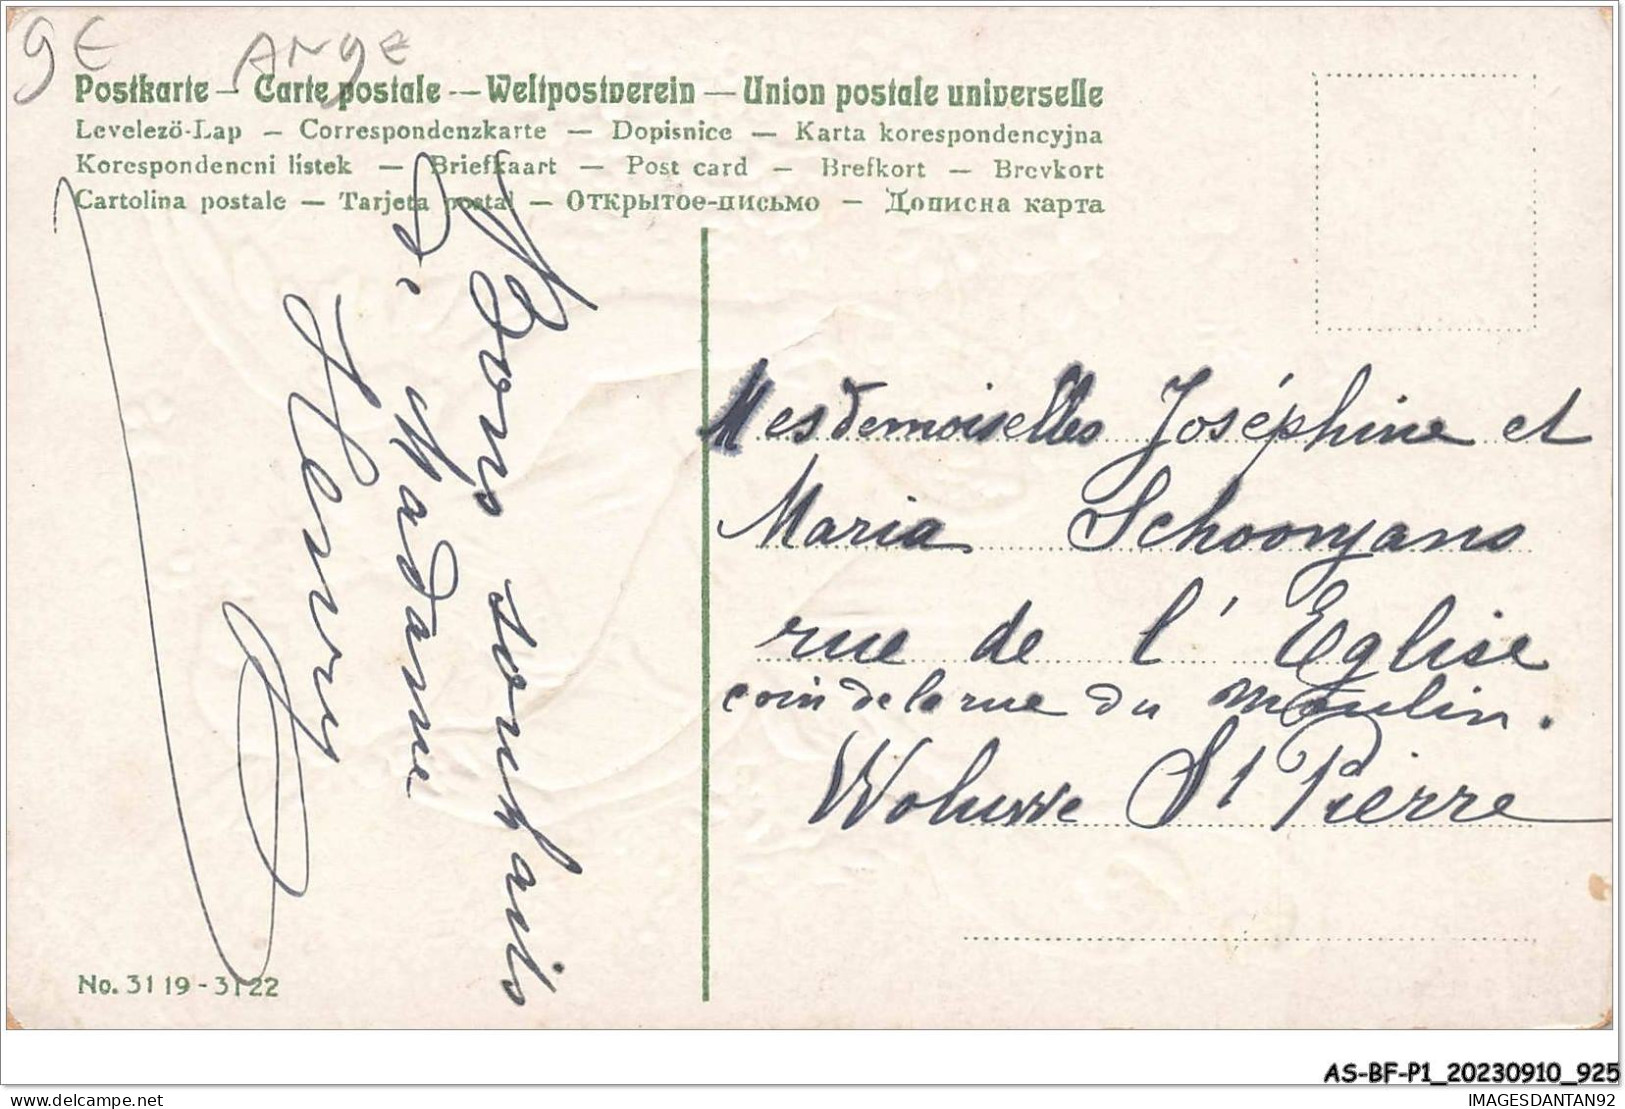 9€ ANGE
Postkarte – Carte postale — Weltpostverein — Union postale universelle
Levelezö-Lap — Correspondenzkarte — Dopisnice — Karta korespondencyjna
Korespondencni listek — Briefkaart — Post card — Brefkort — Brevkort
Cartolina postale — Tarjeta postal — Открытое-письмо — Дописна карта
Bons souhaits
de Madame
Henry
Mesdemoiselles Joséphine et
Maria Schoonjans
rue de l'Eglise
coin de la rue du moulin.
Woluwe St Pierre
No. 3119 - 3122
AS-BF-P1_20230910_925
delcampe.net
IMAGESDANTAN92